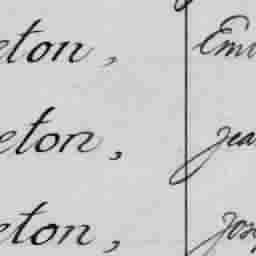 eton, Emi
eton, jea
eton, jos